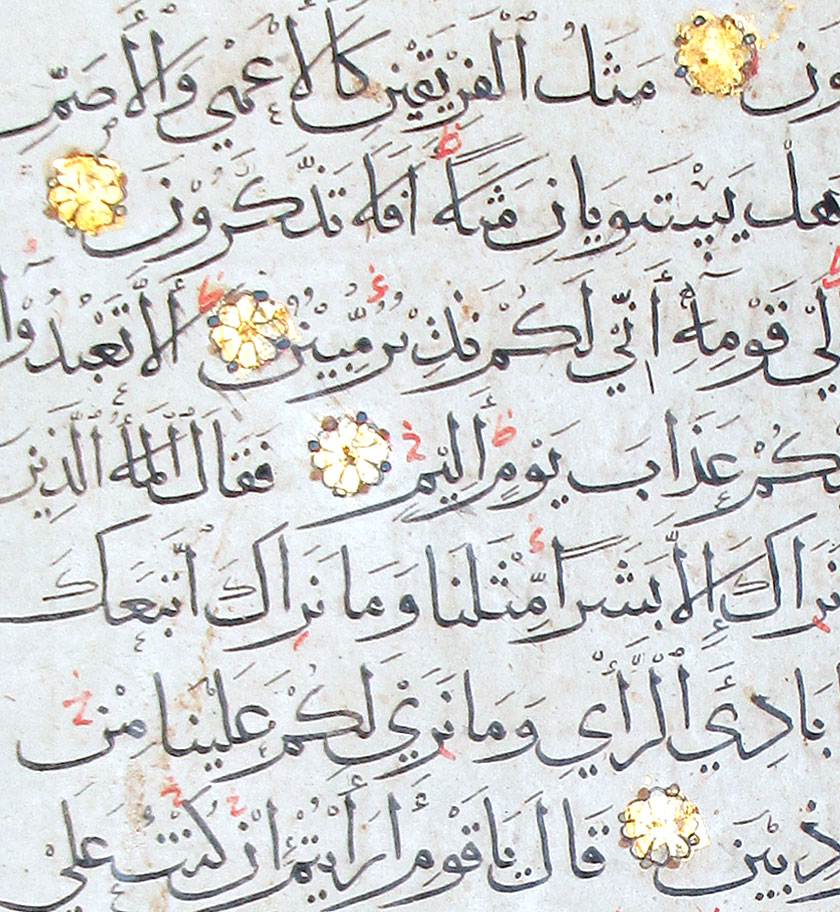 ون مَثَلُ الْفَرِيقَيْنِ كَالْأَعْمَىٰ وَالْأَصَمِّ
هَلْ يَسْتَوِيَانِ مَثَلًا أَفَلَا تَذَّكَّرُونَ
لَىٰ قَوْمِهِ إِنِّي لَكُمْ نَذِيرٌ مُّبِينٌ أَلَّا تَعْبُدُوا
كُمْ عَذَابَ يَوْمٍ أَلِيمٍ فَقَالَ الْمَلَأُ الَّذِينَ
نَرَاكَ إِلَّا بَشَرًا مِّثْلَنَا وَمَا نَرَاكَ اتَّبَعَكَ
بَادِئَ الرَّأْيِ وَمَا نَرَىٰ لَكُمْ عَلَيْنَا مِنْ
ذِبِينَ قَالَ يَا قَوْمِ أَرَأَيْتُمْ إِنْ كُنْتُ عَلَىٰ